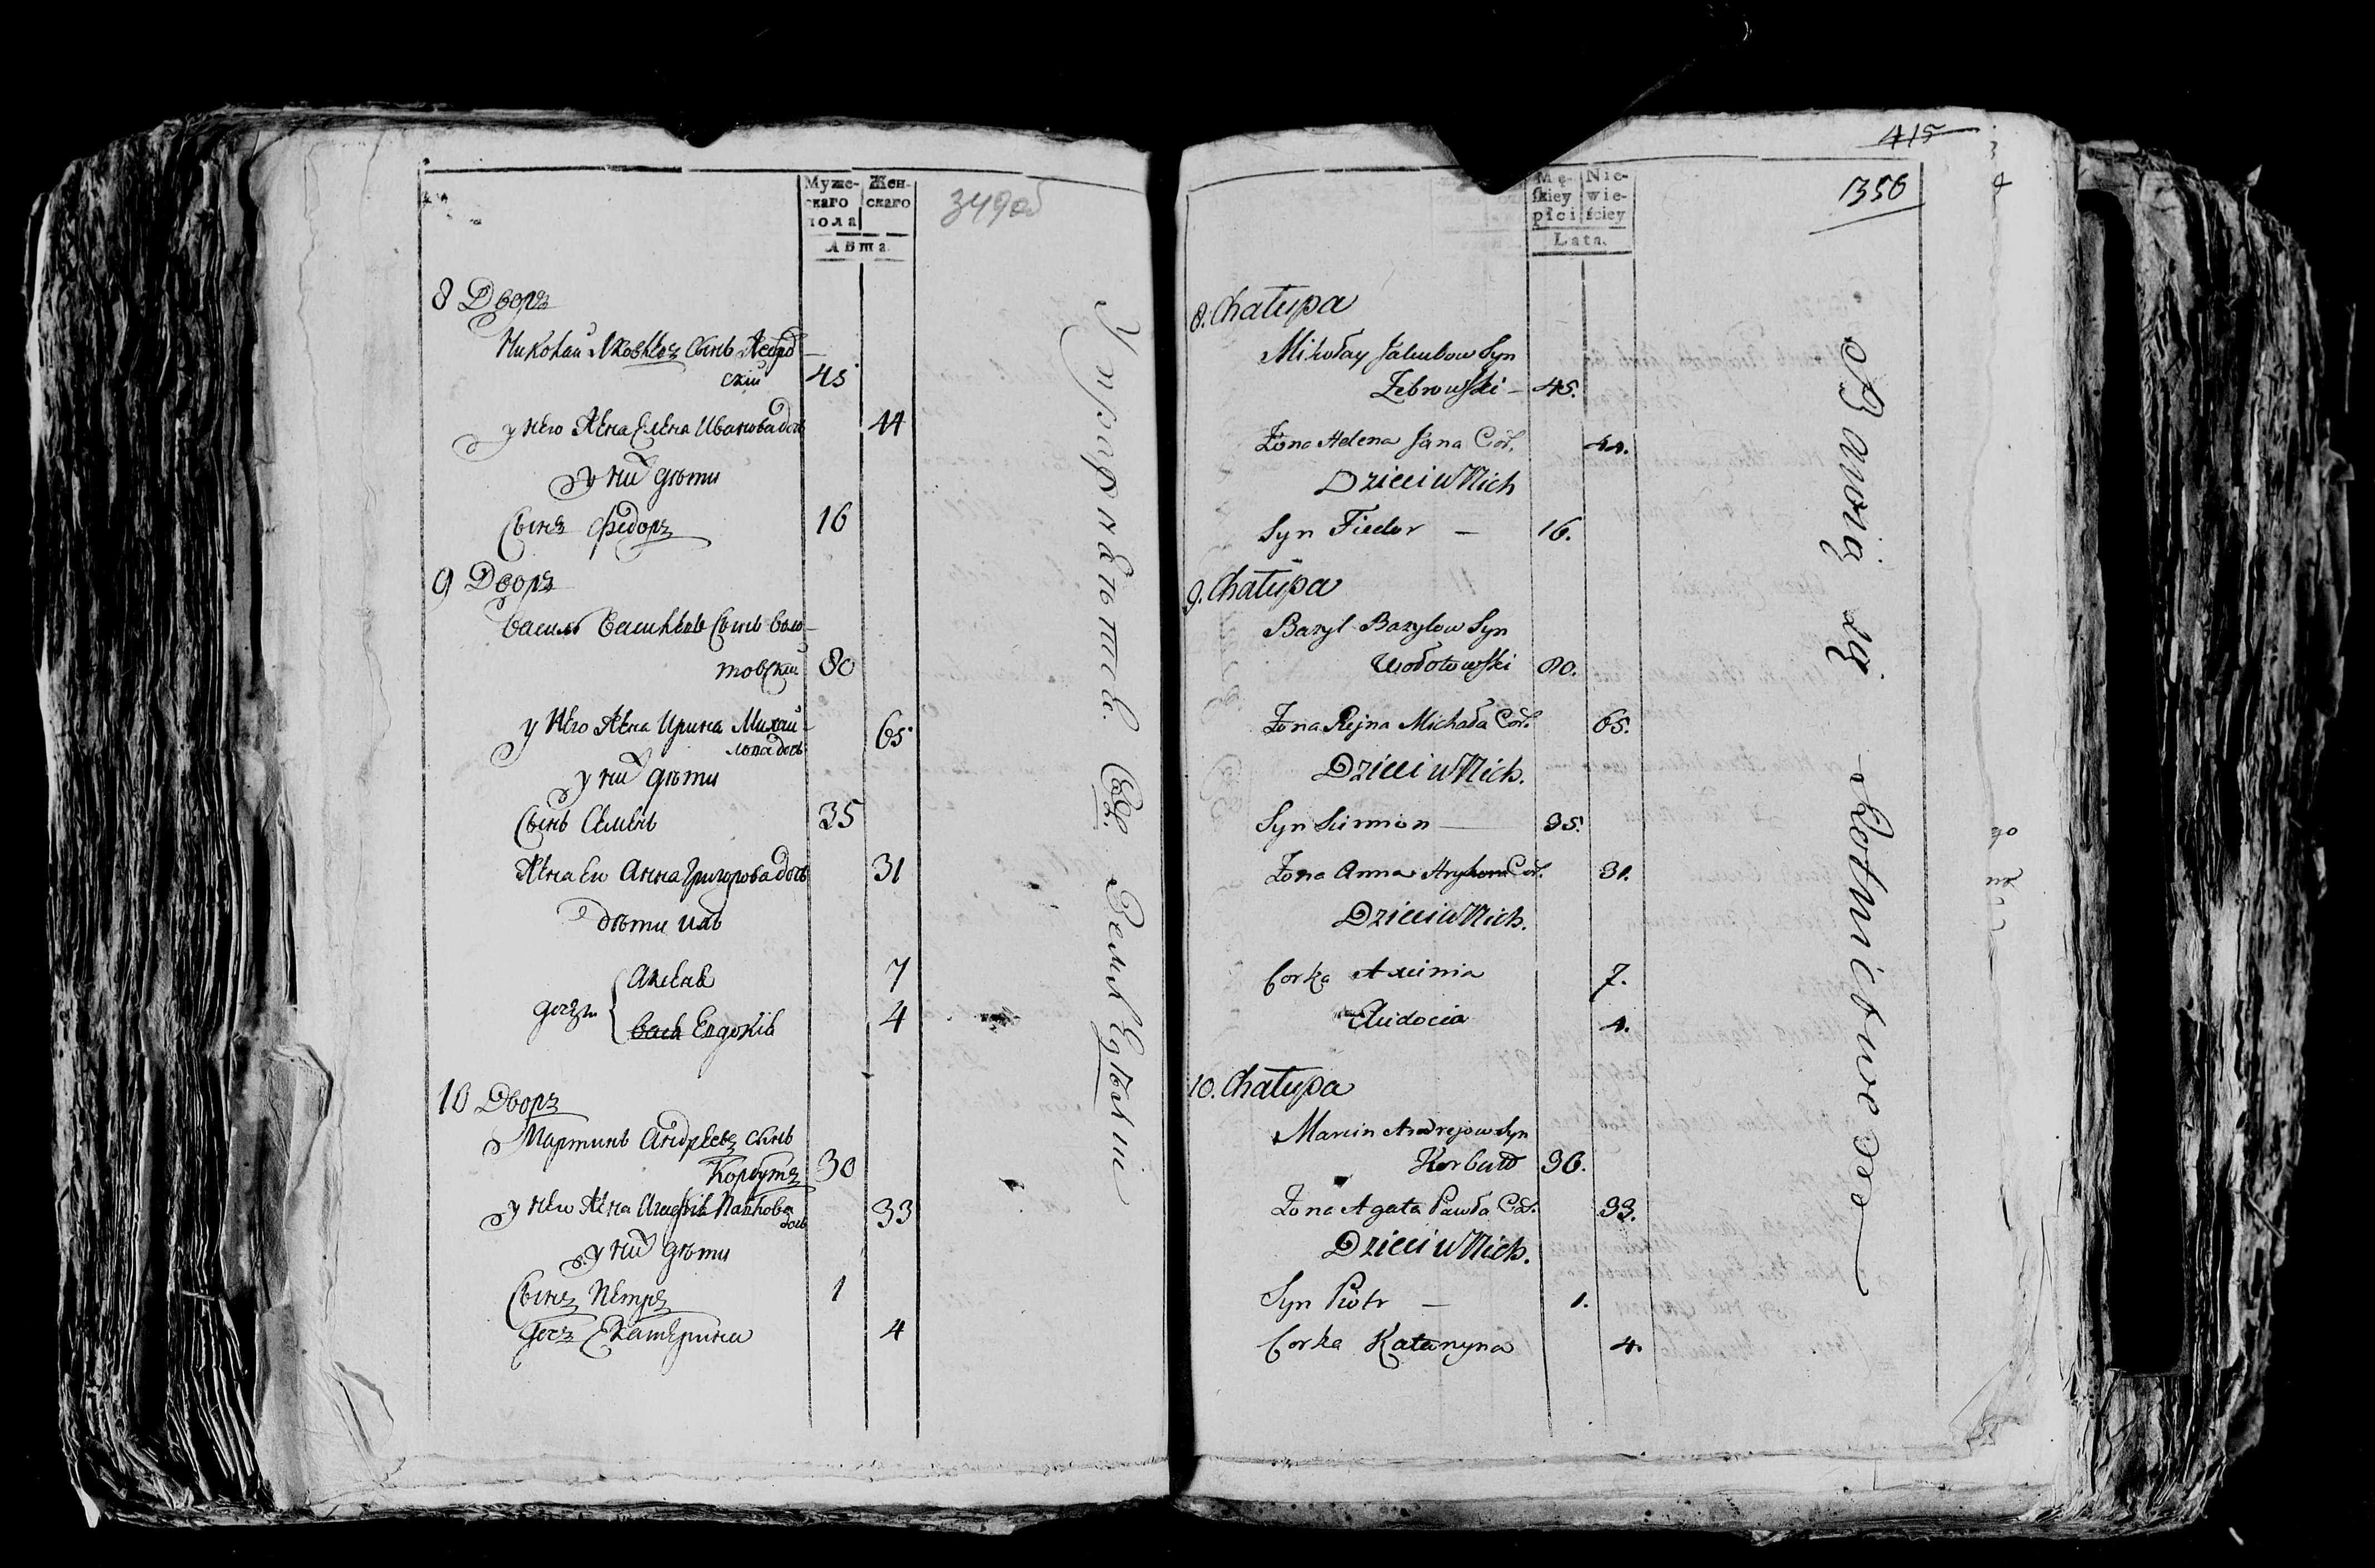 Муже-
скаго
пола
Жен-
скаго
Лѣта.
349об
8 Дворъ
Николай Яковлевъ Сынъ Жебро-
скій 45
у него Жена Елена Иванова дочь 44
у них дѣти
Сынъ Федоръ 16
9 Дворъ
Василь Васильевъ Сынъ Воло-
товскій 80
у него Жена Ирина Михай-
лова дочь 65
у них дѣти
Сынъ Семенъ 35
Жена Ево Анна Григорова дочь 31
дѣти ихъ
7
Евдокія 4
10 Дворъ
Мартинъ Андреевъ сынъ
Корбутъ 30
у него Жена Павлова
дочь 33
у них дѣти
Сынъ Петръ 1
дочь Екатерина 4
415
350
Mę-
skiey
płci
Nie-
wie-
ściey
Lata.
8. Chałupa
Mikołay Jakubow Syn
Żebrowski - 45.
Żona Helena Jana Cór. 44.
Dzieci w Nich
Syn Fiedor — 16.
9. Chałupa
Bazyl Bazylow Syn
Wołotowski 80.
Żona Rejna Michała Cór. 65.
Dzieci w Nich.
Syn Siemion — 35.
Żona Anna Cór. 31.
Dzieci w Nich.
Corka Axinia 7.
Eudocia 4.
10. Chałupa
Marcin Andrejow Syn
Korbut 30.
Żona Agata Pawła Cór. 33.
Dzieci w Nich.
Syn Piotr — 1.
Corka Katarzyna 4.